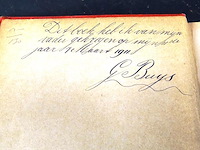 Dit boek heb ik van mijn
vader gekregen op mijn
jaar Maart 1911
G Buijs